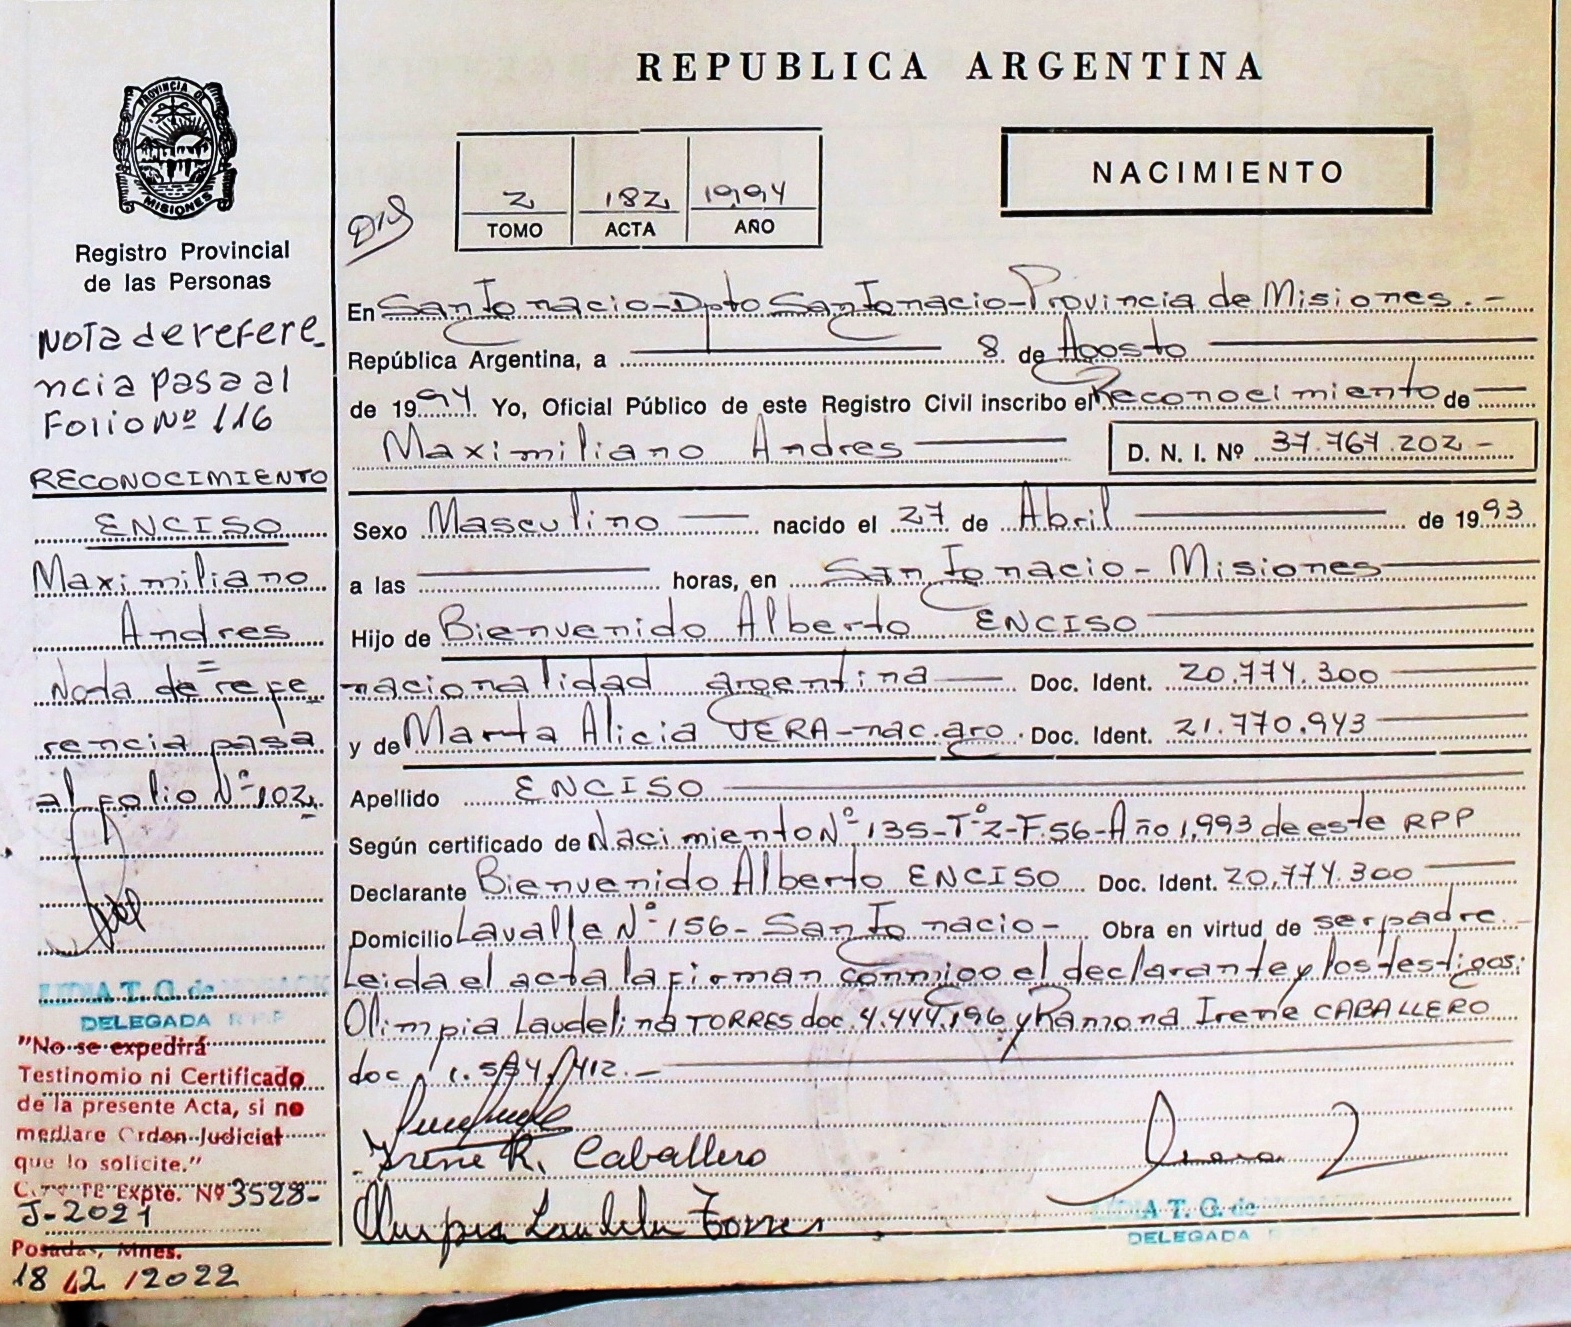 PROVINCIA DE
MISIONES
Registro Provincial
de las Personas
Nota de refere_
ncia pasa al
Folio Nº 116
RECONOCIMIENTO
ENCISO
Maximiliano
Andres
=
Nota de refe
rencia pasa
al folio Nº 102
A T. G. de
DELEGADA R P P
"No se expedirá
Testinomio ni Certificado
de la presente Acta, si no
mediare Orden Judicial
que lo solicite."
Expte. Nº 3528-
J-2021
Posadas, Mnes.
18/2/2022
REPUBLICA ARGENTINA
NACIMIENTO
2 182 1994
TOMO ACTA AÑO
En San Ignacio-Dpto San Ignacio-Provincia de Misiones.-
República Argentina, a 8 de Agosto
de 1994 Yo, Oficial Público de este Registro Civil inscribo el Reconocimiento de
Maximiliano Andres D. N. I. Nº 37.767.202-
Sexo Masculino nacido el 27 de Abril de 1993
a las horas, en San Ignacio - Misiones
Hijo de Bienvenido Alberto ENCISO
nacionalidad argentina Doc. Ident. 20.774.300
y de Marta Alicia VERA-nac.arg. Doc. Ident. 21.770.943
Apellido ENCISO
Según certificado de Nacimiento Nº 135-Tº2-F.56-Año 1.993 de este RPP
Declarante Bienvenido Alberto ENCISO Doc. Ident. 20.774.300
Domicilio Lavalle Nº 156- San Ignacio- Obra en virtud de ser padre.
Leida el acta la firman conmigo el declarante y los testigos:
Olimpia Laudelina TORRES doc. 4.444.196 y Ramona Irene CABALLERO
doc.
Irene R. Caballero
Olimpia Laudelina Torres
A T. G. de
DELEGADA